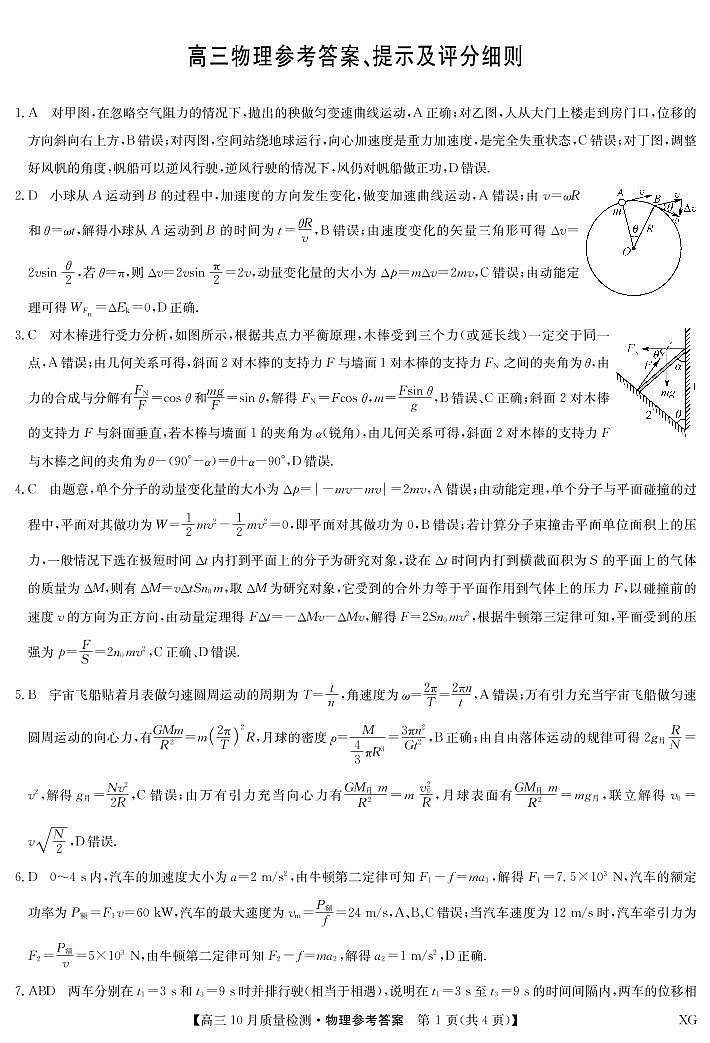 高三物理参考答案、提示及评分细则
1. A 对甲图,在忽略空气阻力的情况下,抛出的秧做匀变速曲线运动,A 正确;对乙图,人从大门上楼走到房门口,位移的
方向斜向右上方,B 错误;对丙图,空间站绕地球运行,向心加速度是重力加速度,是完全失重状态,C 错误;对丁图,调整
好风帆的角度,帆船可以逆风行驶,逆风行驶的情况下,风仍对帆船做正功,D 错误.
2. D 小球从 A 运动到 B 的过程中,加速度的方向发生变化,做变加速曲线运动,A 错误;由 v=ωR
和 θ=ωt,解得小球从 A 运动到 B 的时间为 t=θR/v,B 错误;由速度变化的矢量三角形可得 Δv=
2vsin θ/2,若 θ=π,则 Δv=2vsin π/2=2v,动量变化量的大小为 Δp=mΔv=2mv,C 错误;由动能定
理可得 W_{Fn}=ΔEk=0,D 正确.
A v B v
m θ Δv
θ R
O
3. C 对木棒进行受力分析,如图所示,根据共点力平衡原理,木棒受到三个力(或延长线)一定交于同一
点,A 错误;由几何关系可得,斜面 2 对木棒的支持力 F 与墙面 1 对木棒的支持力 FN 之间的夹角为 θ,由
力的合成与分解有 FN/F=cos θ 和 mg/F=sin θ,解得 FN=Fcos θ,m=Fsin θ/g,B 错误、C 正确;斜面 2 对木棒
的支持力 F 与斜面垂直,若木棒与墙面 1 的夹角为 α(锐角),由几何关系可得,斜面 2 对木棒的支持力 F
与木棒之间的夹角为 θ-(90°-α)=θ+α-90°,D 错误.
FN θ
F α
mg 1
2 θ
4. C 由题意,单个分子的动量变化量的大小为 Δp=|-mv-mv|=2mv,A 错误;由动能定理,单个分子与平面碰撞的过
程中,平面对其做功为 W=1/2 mv²-1/2 mv²=0,即平面对其做功为 0,B 错误;若计算分子束撞击平面单位面积上的压
力,一般情况下选在极短时间 Δt 内打到平面上的分子为研究对象,设在 Δt 时间内打到横截面积为 S 的平面上的气体
的质量为 ΔM,则有 ΔM=vΔtSn₀m,取 ΔM 为研究对象,它受到的合外力等于平面作用到气体上的压力 F,以碰撞前的
速度 v 的方向为正方向,由动量定理得 FΔt=-ΔMv-ΔMv,解得 F=2Sn₀mv²,根据牛顿第三定律可知,平面受到的压
强为 p=F/S=2n₀mv²,C 正确、D 错误.
5. B 宇宙飞船贴着月表做匀速圆周运动的周期为 T=t/n,角速度为 ω=2π/T=2πn/t,A 错误;万有引力充当宇宙飞船做匀速
圆周运动的向心力,有 GMm/R²=m(2π/T)²R,月球的密度 ρ=M/(4/3 πR³)=3πn²/Gt²,B 正确;由自由落体运动的规律可得 2g月 R/N=
v²,解得 g月=Nv²/2R,C 错误;由万有引力充当向心力有 GM月 m/R²=m v₀²/R,月球表面有 GM月 m/R²=mg月,联立解得 v₀=
v√(N/2),D 错误.
6. D 0~4 s 内,汽车的加速度大小为 a=2 m/s²,由牛顿第二定律可知 F₁-f=ma₁,解得 F₁=7.5×10³ N,汽车的额定
功率为 P额=F₁v=60 kW,汽车的最大速度为 vm=P额/f=24 m/s,A、B、C 错误;当汽车速度为 12 m/s 时,汽车牵引力为
F₂=P额/v=5×10³ N,由牛顿第二定律可知 F₂-f=ma₂,解得 a₂=1 m/s²,D 正确.
7. ABD 两车分别在 t₁=3 s 和 t₃=9 s 时并排行驶(相当于相遇),说明在 t₁=3 s 至 t₃=9 s 的时间间隔内,两车的位移相
【高三 10 月质量检测·物理参考答案 第 1 页(共 4 页)】 XG